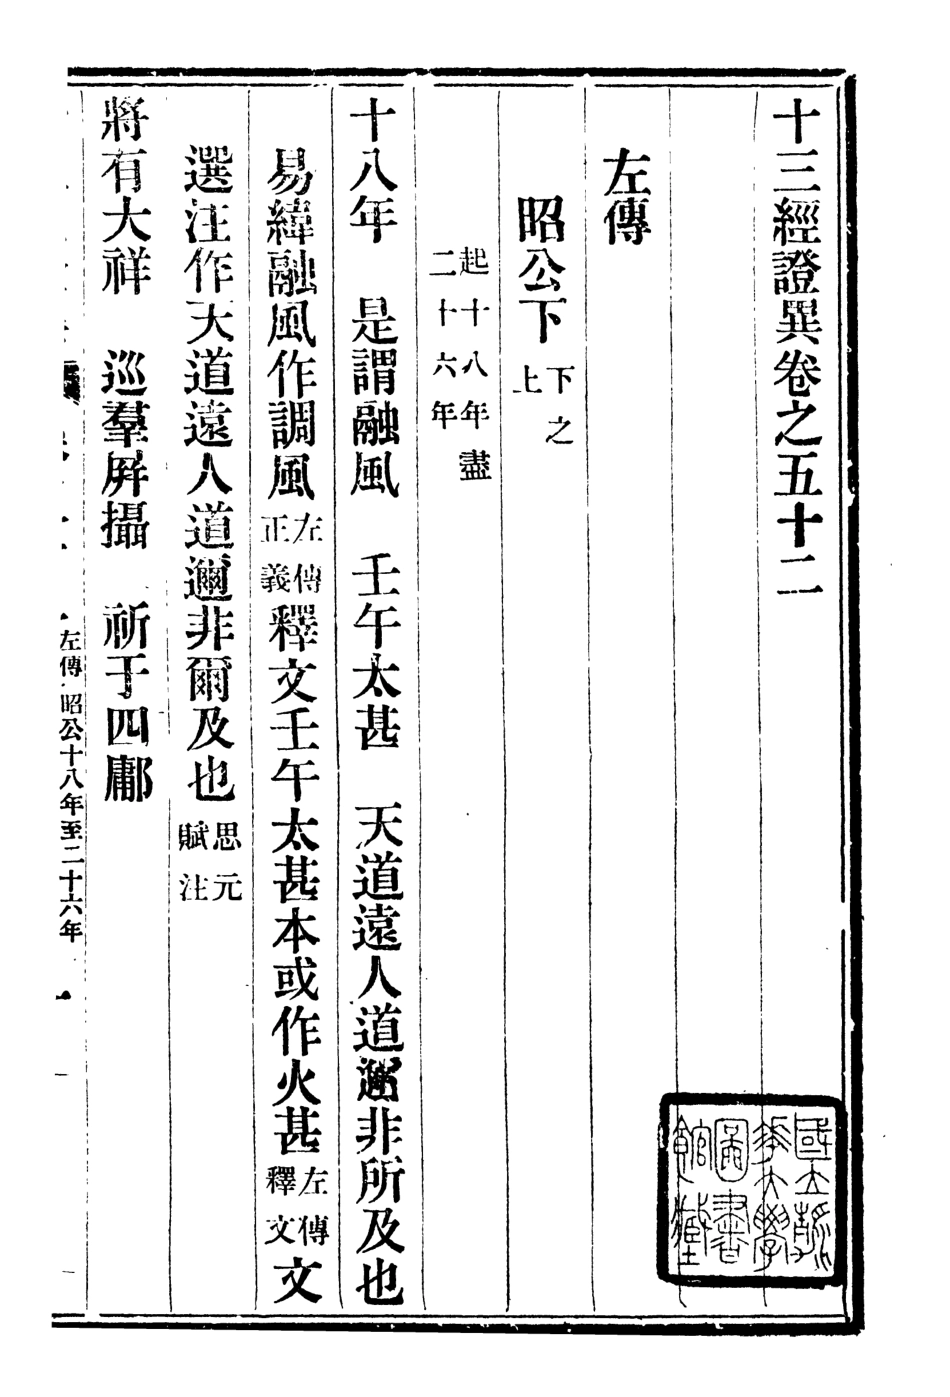 十三經證異卷之五十二
左傳
昭公下下之上
起十八年盡二十六年
十八年　是謂融風　壬午太甚　天道遠人道邇非所及也
易緯融風作調風左傳正義釋文壬午太甚本或作火甚左傳釋文文
選注作天道遠人道邇非爾及也思元賦注
將有大祥　巡羣屏攝　祈于四鄘
左傳 昭公十八年至二十六年
國立清華大學圖書館藏